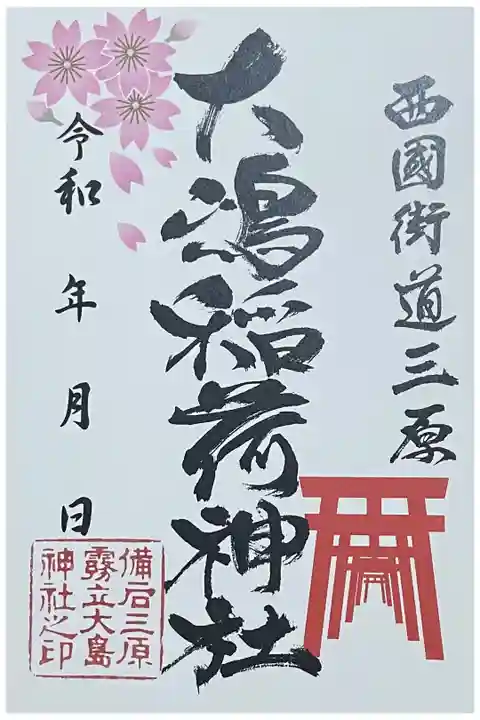 西國街道三原
大嶋稲荷神社
令和　年　月　日
備后三原
霧立大島
神社之印